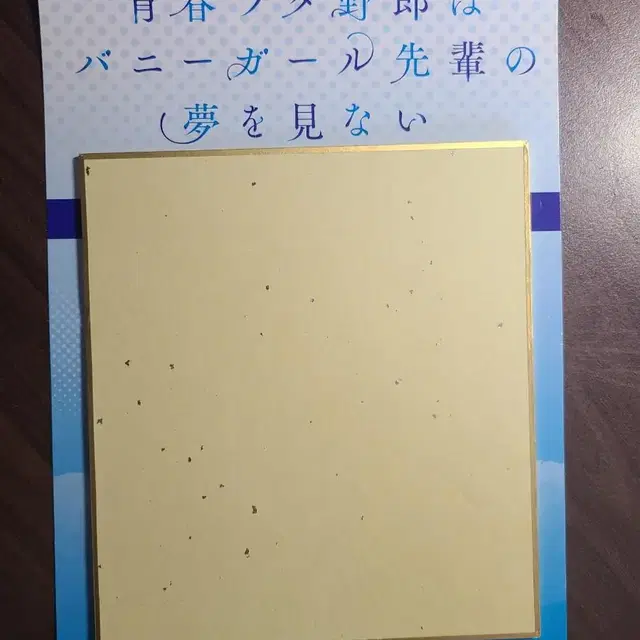 青春ブタ野郎は
バニーガール先輩の
夢を見ない